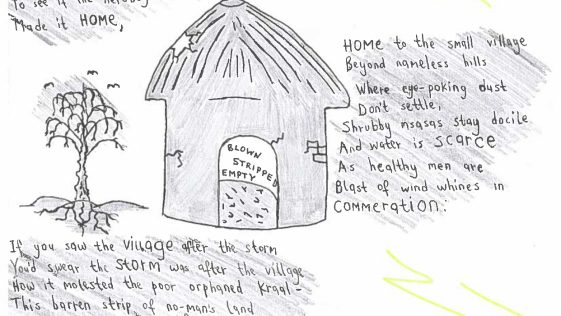 To see if the
Made it HOME,
HOME to the small village
Beyond nameless hills
Where eye-poking dust
Don't settle,
Shrubby msasas stay docile
And water is SCARCE
As healthy men are
Blast of wind whines in
COMMERATION:
BLOWN
STRIPPED
EMPTY
If you saw the village after the storm
You'd swear the STORM was after the village
How it molested the poor orphaned Kraal -
This barren strip of no-man's land